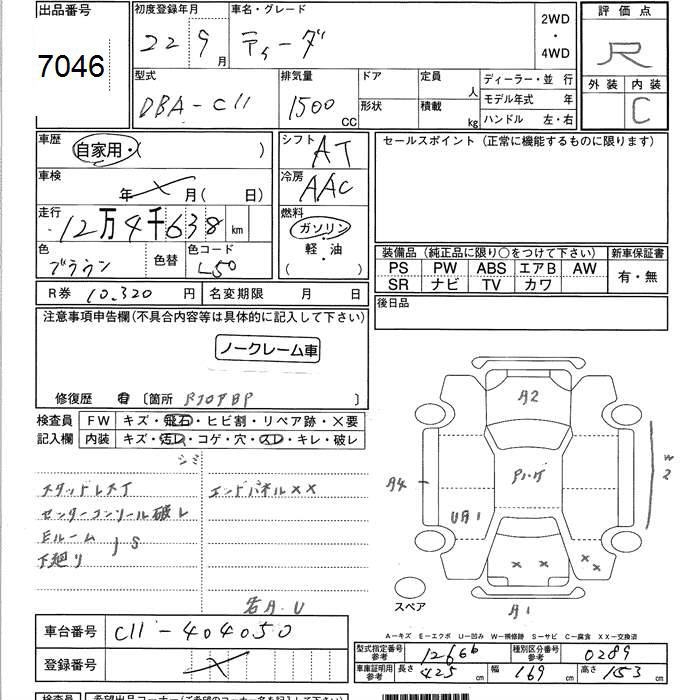 出品番号
7046
初度登録年月
22 9 月
車名・グレード
ティーダ
2WD
・
4WD
評価点
R
外装 内装
C
型式
DBA-C11
排気量
1500 CC
ドア
形状
定員 人
積載 kg
ディーラー・並 行
モデル年式 年
ハンドル 左・右
車歴
自家用・( )
車検
年 月( 日)
走行
12万4千638 km
色
ブラウン
色替
色コード
L50
シフト
AT
冷房
AAC
燃料
ガソリン
軽・油
( )
セールスポイント(正常に機能するものに限ります)
装備品(純正品に限り○をつけて下さい)
新車保証書
PS PW ABS エアB AW
SR ナビ TV カワ
有・無
後日品
R券 10,320 円
名変期限 月 日
注意事項申告欄(不具合内容等は具体的に記入して下さい)
ノークレーム車
修復歴 有 〔箇所 〕
検査員
記入欄
FW キズ・飛石・ヒビ割・リペア跡・×要
内装 キズ・汚レ・コゲ・穴・スレ・キレ・破レ
シミ
スタッドレス
センターコンソール破レ
Eルーム
下廻り
S
エンドパネルXX
A2
A4
UA1
W2
A1
スペア
A-キズ E-エクボ U-凹み W-補修跡 S-サビ C-腐食 XX-交換済
車台番号 C11-404050
登録番号
型式指定番号
参考
12666
種別区分番号
参考
0289
車庫証明用
参考
長さ 425 cm
幅 169 cm
高さ 153 cm
検査員
希望出品コーナー